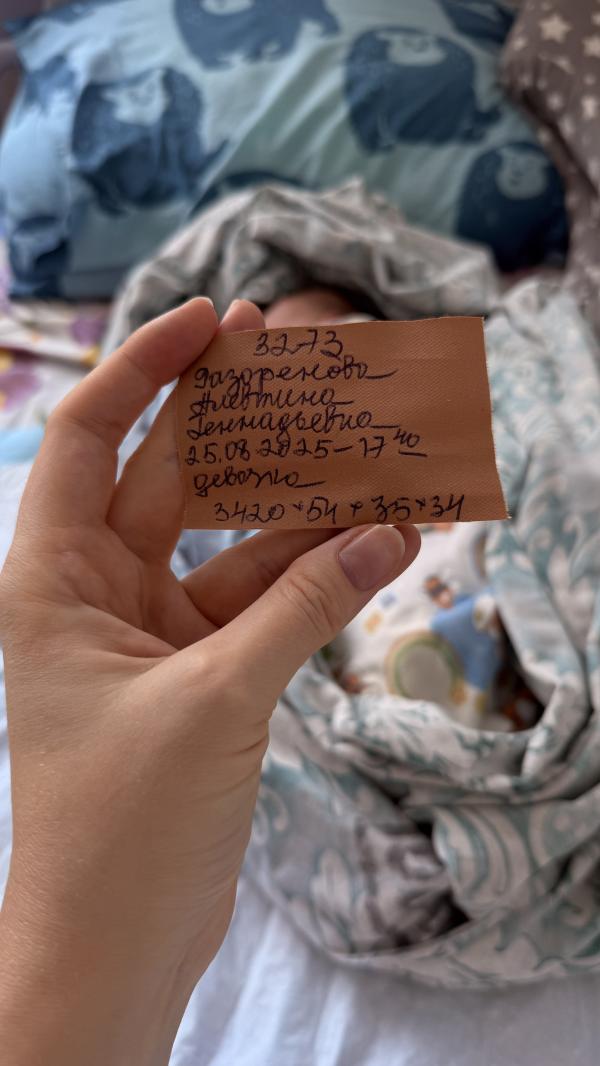 3273
Газаренова
Алевтина
Геннадьевна
25.08.2025 - 17⁴⁰
девочка
3420 * 54 * 35 * 34